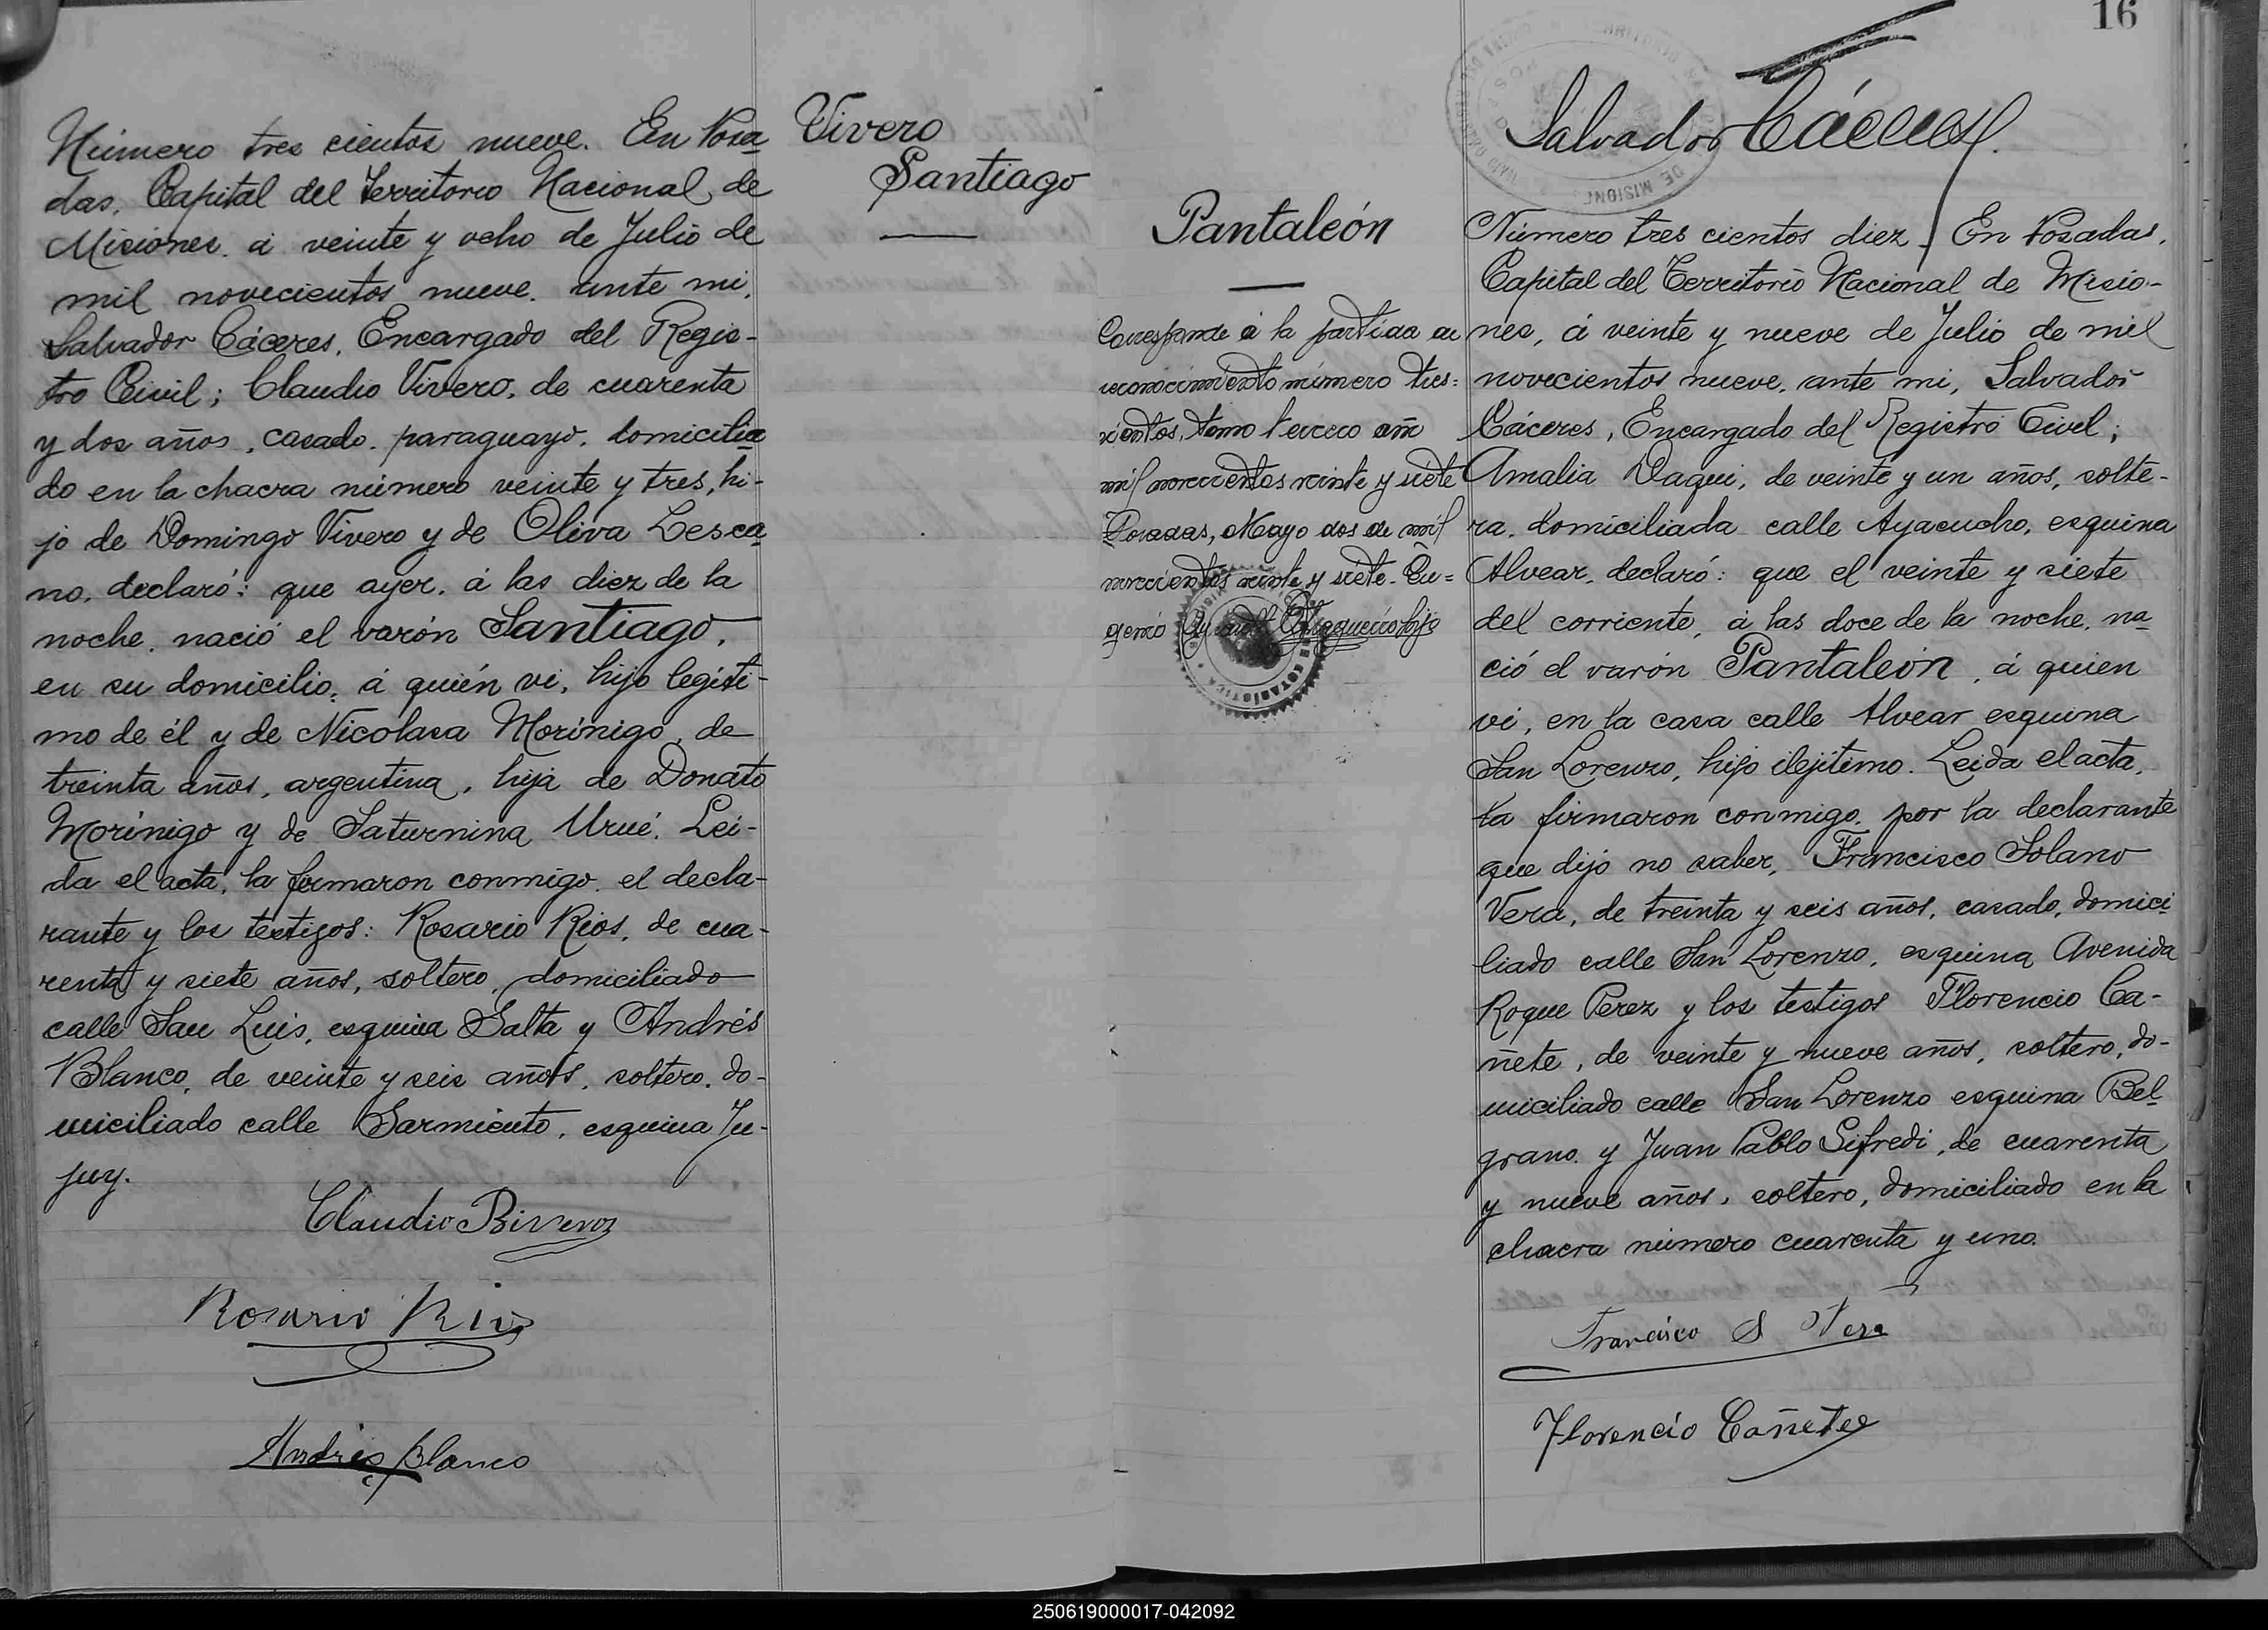 Número tres cientos nueve. En Posa
das, Capital del Territorio Nacional de
Misiones, á veinte y ocho de Julio de
mil novecientos nueve, ante mi,
Salvador Cáceres, Encargado del Regis-
tro Civil; Claudio Vivero, de cuarenta
y dos años, casado, paraguayo, domicilia
do en la chacra número veinte y tres, hi-
jo de Domingo Vivero y de Oliva Lesca
no, declaró: que ayer, á las diez de la
noche, nació el varón Santiago,
en su domicilio, á quién vi, hijo legíti-
mo de él y de Nicolasa Morínigo, de
treinta años, argentina, hija de Donato
Morínigo y de Saturnina Urué. Lei-
da el acta, la firmaron conmigo, el decla-
rante y los testigos: Rosario Rios, de cua-
renta y siete años, soltero, domiciliado
calle San Luis, esquina Salta y Andrés
Blanco, de veinte y seis años, soltero, do-
miciliado calle Sarmiento, esquina Ju-
juy.
Claudio Bivero
Rosario Rios
Andres Blanco
Vivero
Santiago
16
Salvador Cáceres.
DE MISIONES
Pantaleón
Corresponde á la partida de
reconocimiento número tres=
cientos, tomo tercero año
mil novecientos veinte y siete
Posadas, Mayo dos de mil
novecientos veinte y siete. Eu=
genio hijo
Número tres cientos diez. En Posadas,
Capital del Territorio Nacional de Misio-
nes, á veinte y nueve de Julio de mil
novecientos nueve, ante mi, Salvador
Cáceres, Encargado del Registro Civil;
Amalia Daqui, de veinte y un años, solte-
ra, domiciliada calle Ayacucho, esquina
Alvear, declaró: que el veinte y siete
del corriente, á las doce de la noche, na
ció el varón Pantaleón, á quien
vi, en la casa calle Alvear esquina
San Lorenzo, hijo ilejítimo. Leida el acta,
la firmaron conmigo, por la declarante
que dijo no saber, Francisco Solano
Vera, de treinta y seis años, casado, domici
liado calle San Lorenzo, esquina Avenida
Roque Perez y los testigos Florencio Ca-
ñete, de veinte y nueve años, soltero, do-
miciliado calle San Lorenzo esquina Bel
grano y Juan Pablo Sifredi, de cuarenta
y nueve años, soltero, domiciliado en la
chacra número cuarenta y uno.
Francisco S Vera
Florencio Cañete
250619000017-042092